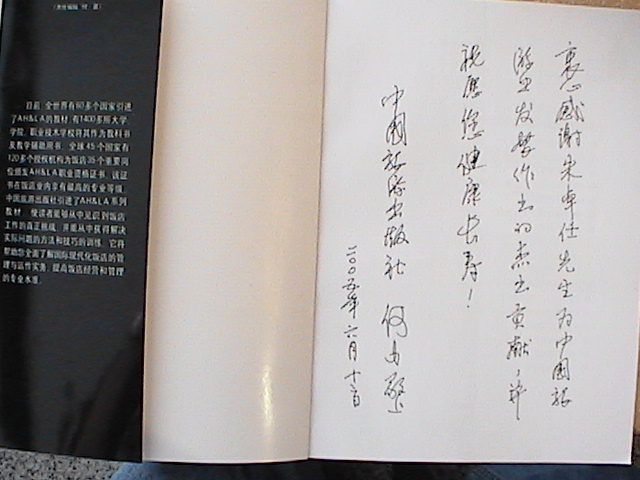 目前,全世界有60多个国家引进
了AH&LA的教材,有1400多所大学、
学院、职业技术学校将其作为教科书
及教学辅助用书。全球45个国家有
120多个授权机构为饭店35个重要岗
位颁发AH&LA职业资格证书。该证
书在饭店业内享有最高的专业等级。
中国旅游出版社引进了AH&LA系列
教材,使读者能够从中见识到饭店
工作的真正挑战,并能从中获得解决
实际问题的方法和技巧的训练。它将
帮助您全面了解国际现代化饭店的管
理与运作实务,提高饭店经营和管理
的专业水准。
衷心感谢朱卓任先生为中国旅
游业发展作出的杰出贡献,并
祝愿您健康长寿!
中国旅游出版社 何
二00五年六月十